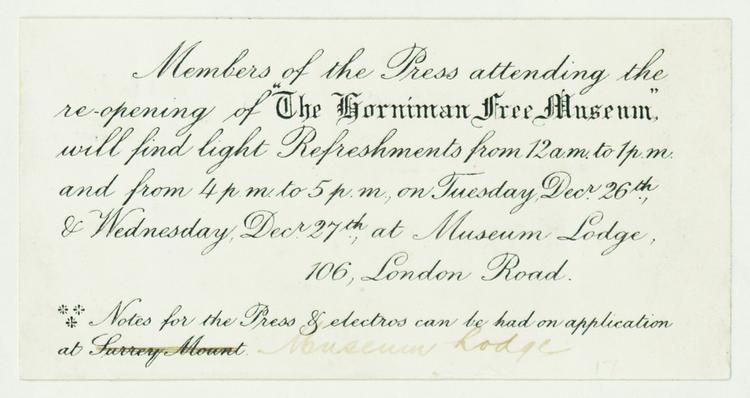 Members of the Press attending the
re-opening of "The Horniman Free Museum",
will find light Refreshments from 12 a.m. to 1 p.m.
and from 4 p.m. to 5 p.m., on Tuesday, Decr. 26th,
& Wednesday, Decr. 27th, at Museum Lodge,
106, London Road.
⁂ Notes for the Press & electros can be had on application
at Surrey Mount. Museum Lodge
17